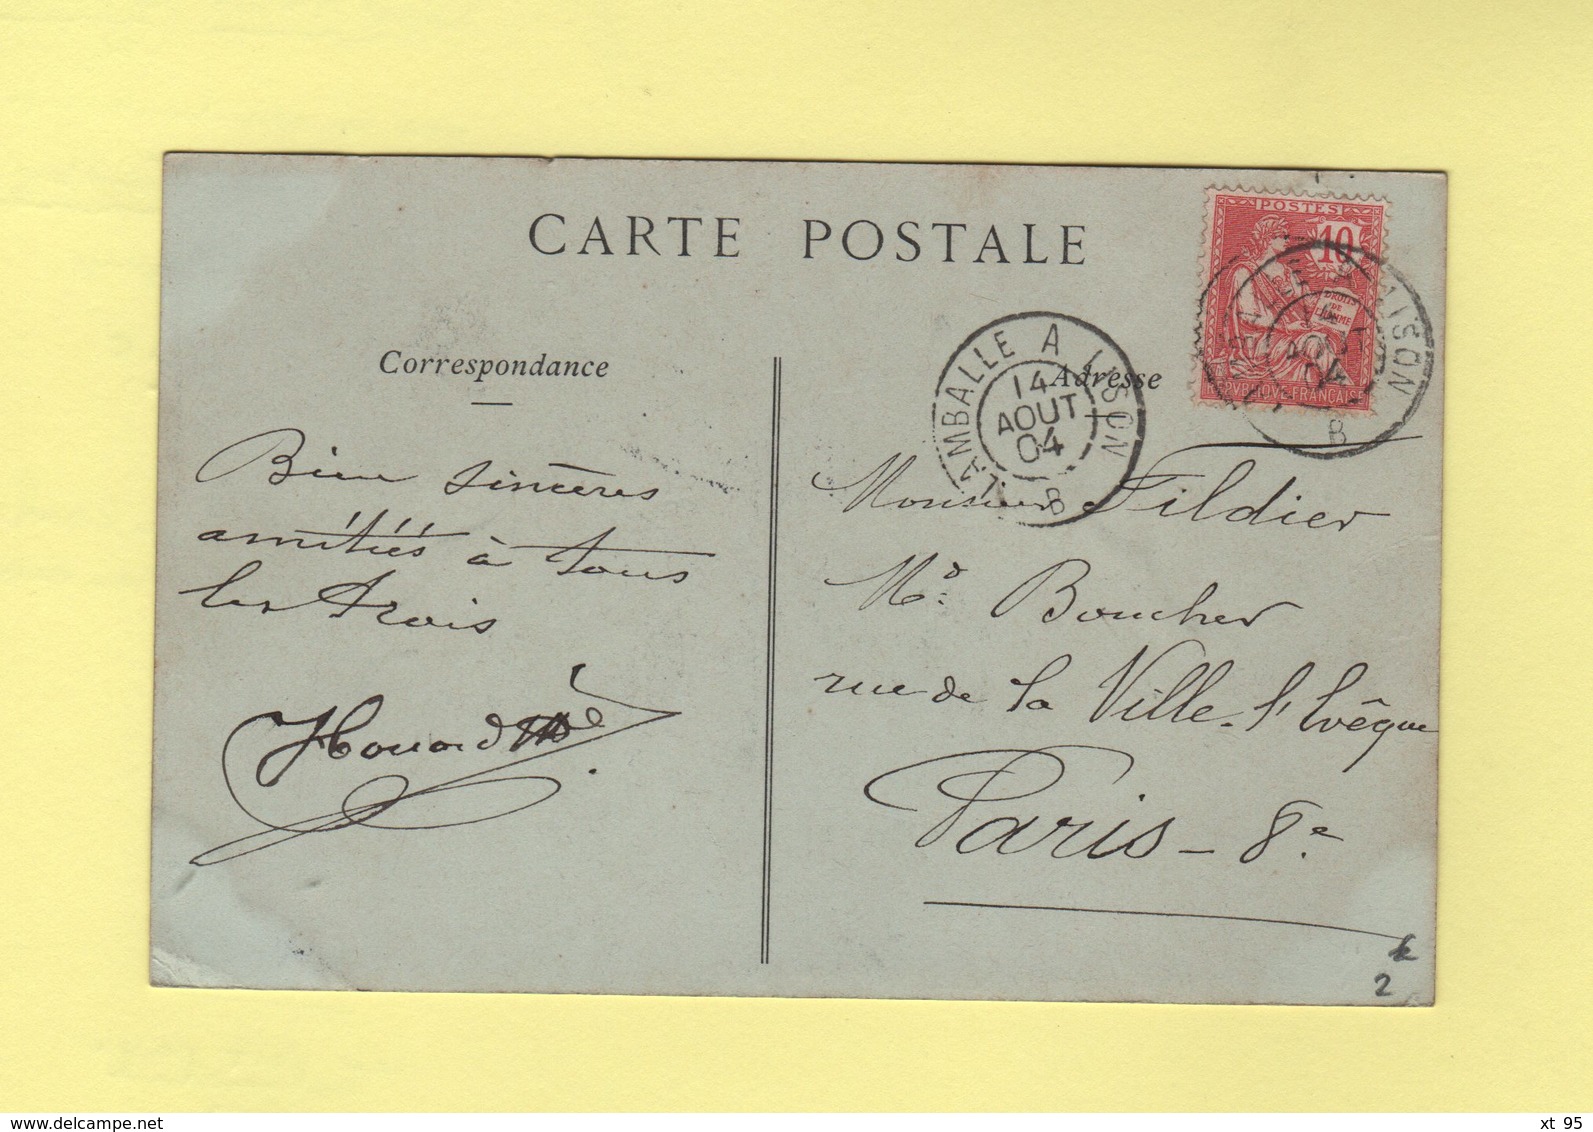 CARTE POSTALE
POSTES
10
DROITS
DE
L'HOMME
REPVBLIQVE FRANÇAISE
LAMBALLE A LISON
14
AOUT
04
B
LAMBALLE A LISON
14
AOUT
04
B
Correspondance
Adresse
Bien sincères
amitiés à tous
les trois
Monsieur Fildier
Md. Boucher
rue de la Ville-l'Evêque
Paris - 8.e
2
www.delcampe.net
xt 95